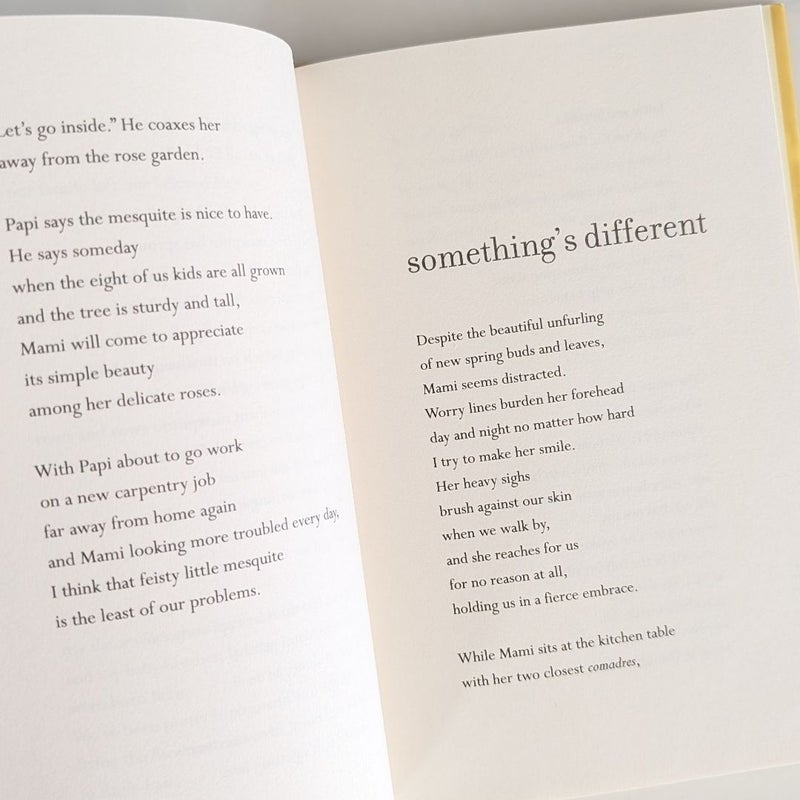 Let's go inside.” He coaxes her
away from the rose garden.
Papi says the mesquite is nice to have.
He says someday
when the eight of us kids are all grown
and the tree is sturdy and tall,
Mami will come to appreciate
its simple beauty
among her delicate roses.
With Papi about to go work
on a new carpentry job
far away from home again
and Mami looking more troubled every day,
I think that feisty little mesquite
is the least of our problems.
something's different
Despite the beautiful unfurling
of new spring buds and leaves,
Mami seems distracted.
Worry lines burden her forehead
day and night no matter how hard
I try to make her smile.
Her heavy sighs
brush against our skin
when we walk by,
and she reaches for us
for no reason at all,
holding us in a fierce embrace.
While Mami sits at the kitchen table
with her two closest comadres,